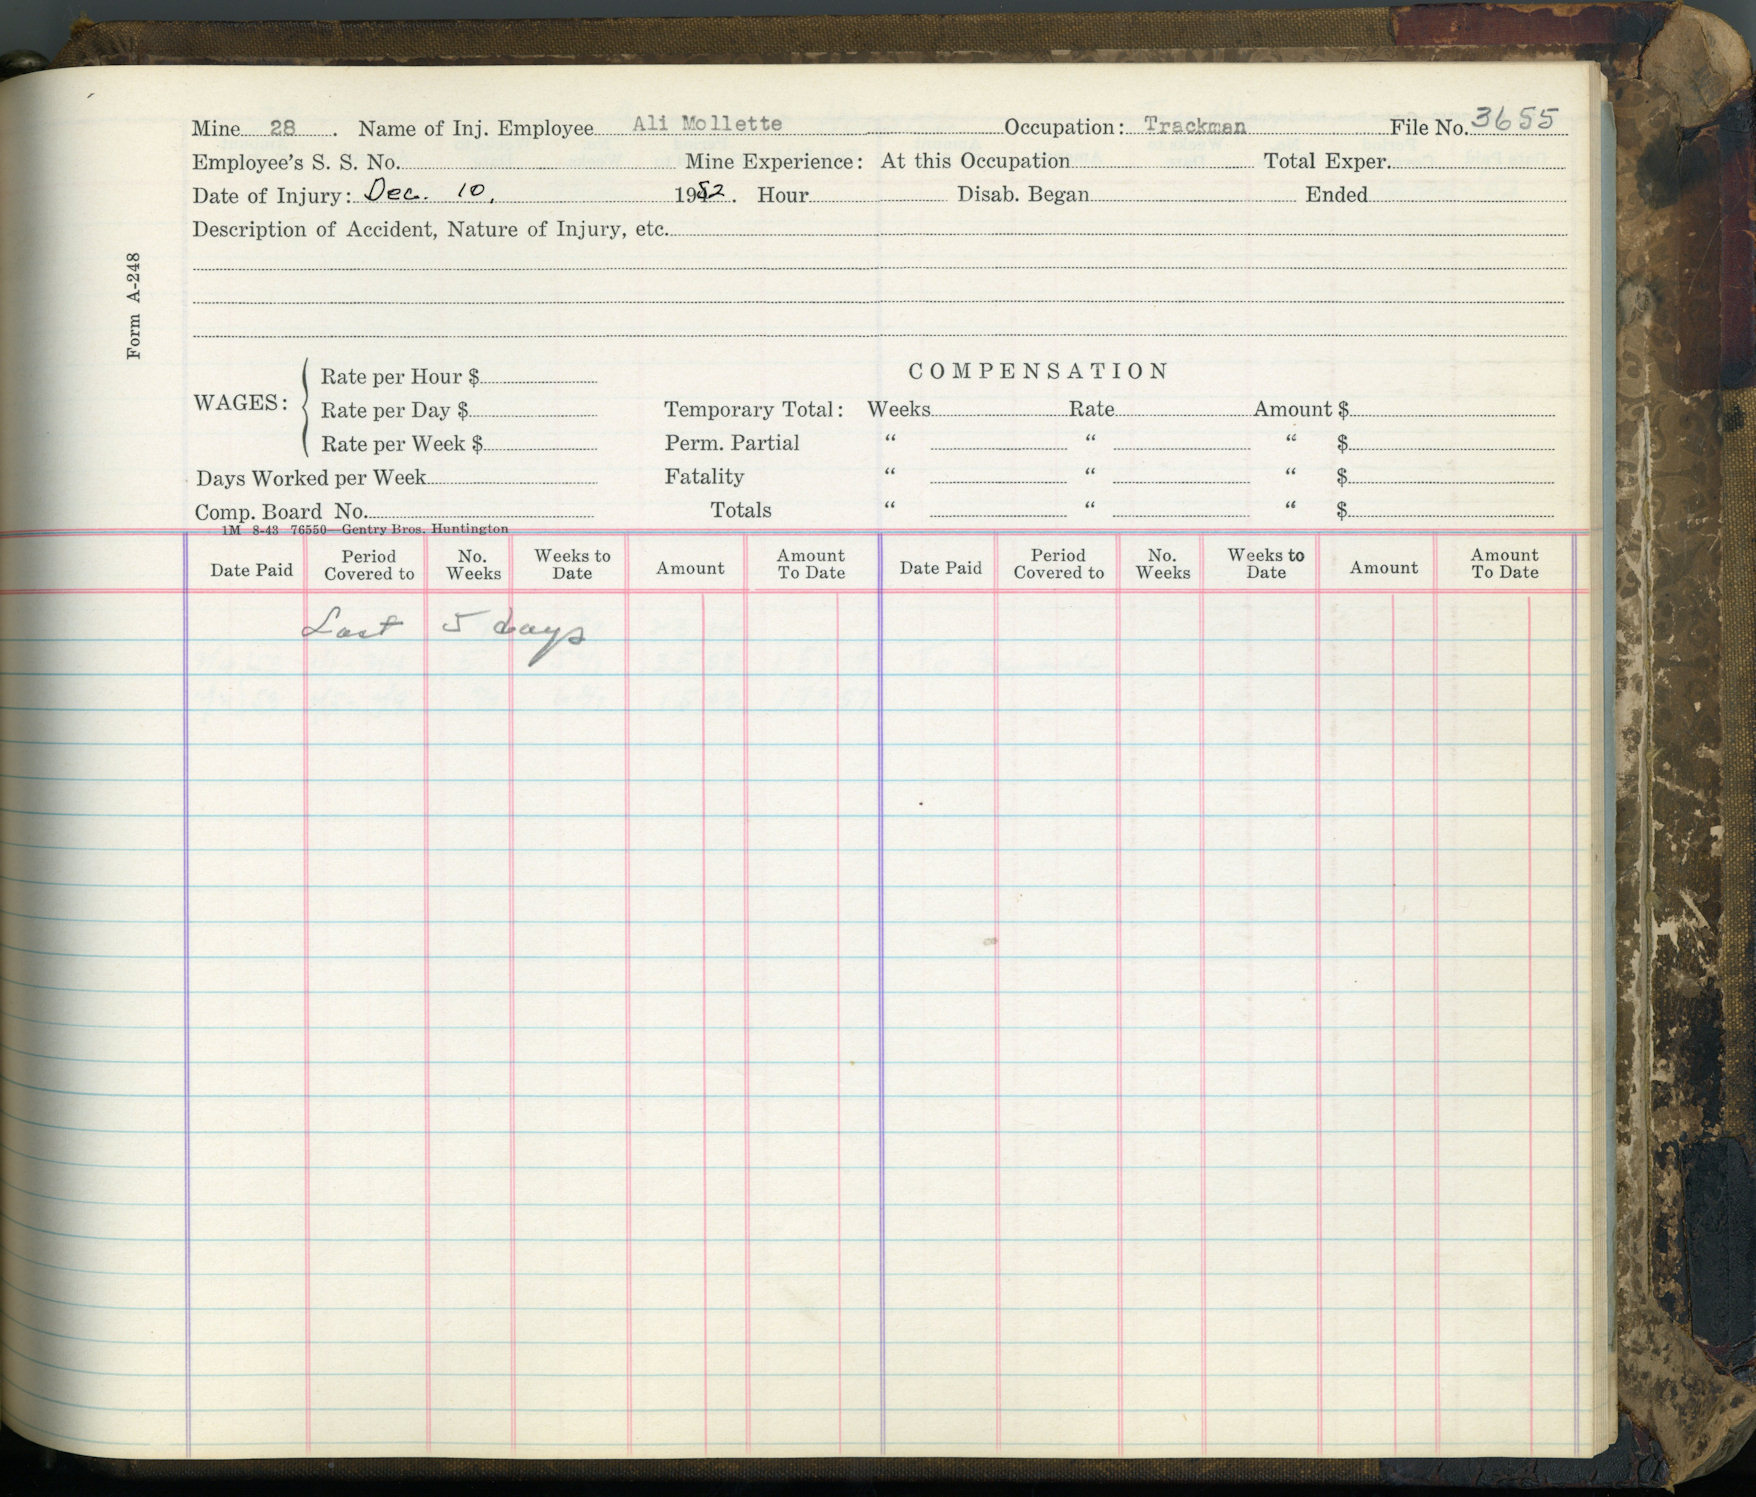 Mine 28. Name of Inj. Employee Ali Mollette Occupation: Trackman File No. 3655
Employee's S. S. No. Mine Experience: At this Occupation Total Exper.
Date of Injury: Dec. 10, 1952. Hour Disab. Began Ended
Description of Accident, Nature of Injury, etc.
Form A-248
COMPENSATION
WAGES: Rate per Hour $
Rate per Day $ Temporary Total: Weeks Rate Amount $
Rate per Week $ Perm. Partial " " " $
Days Worked per Week Fatality " " " $
Comp. Board No. Totals " " " $
1M 8-43 76550—Gentry Bros. Huntington
Date Paid Period Covered to No. Weeks Weeks to Date Amount Amount To Date Date Paid Period Covered to No. Weeks Weeks to Date Amount Amount To Date
Lost 5 days